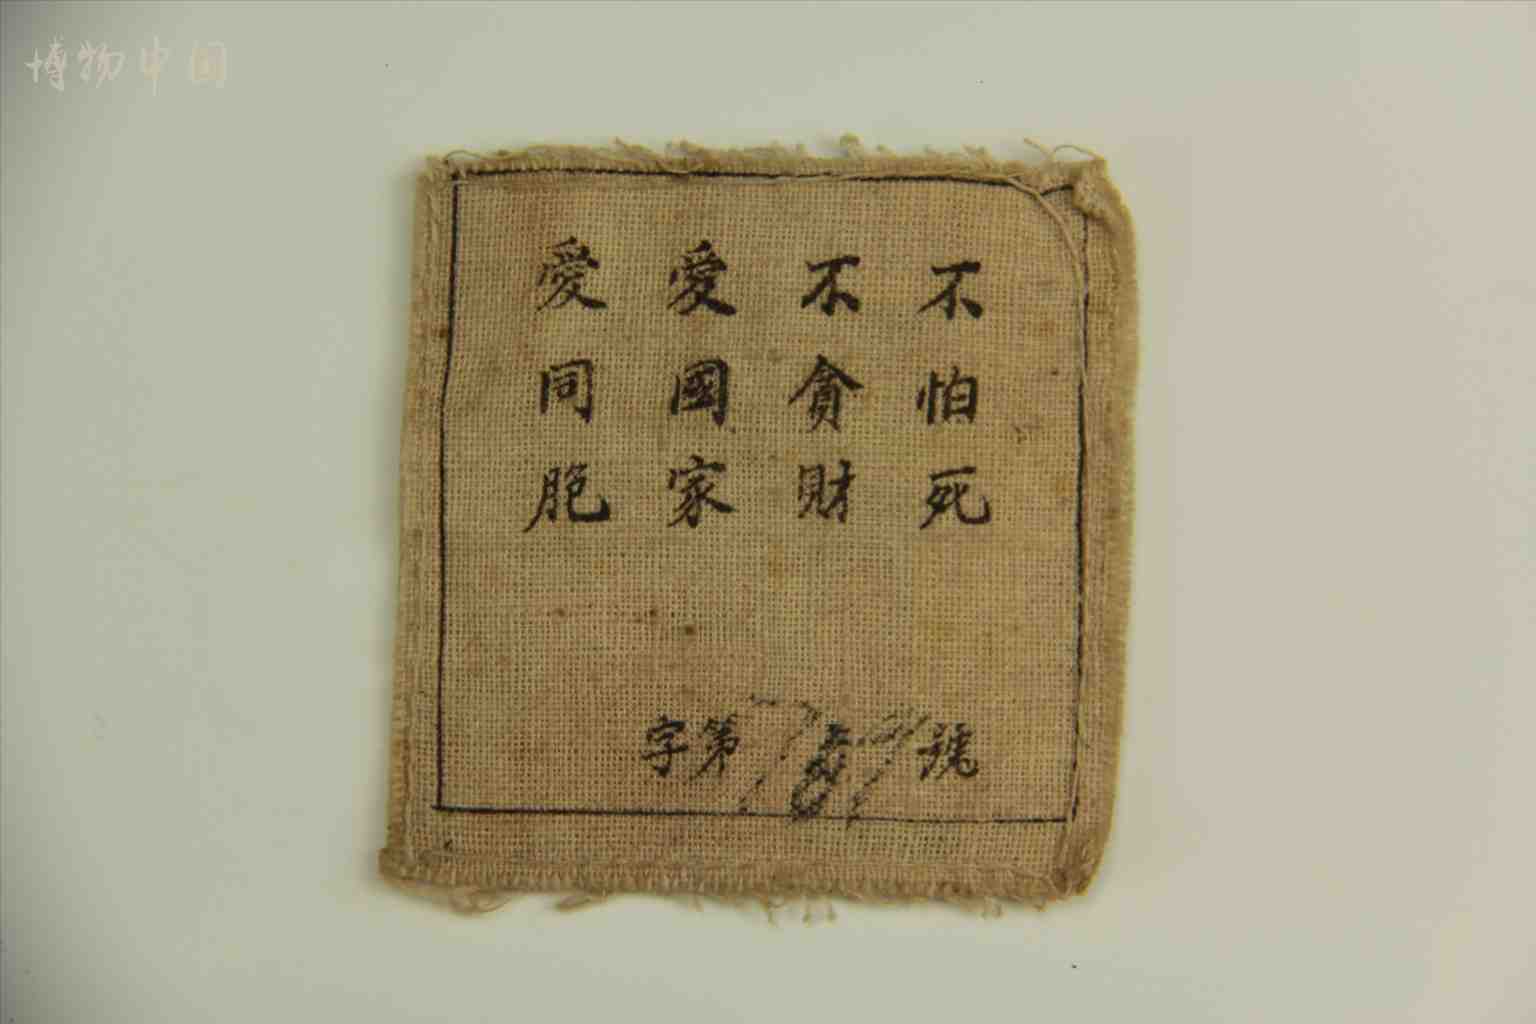 博物中国
不怕死
不貪財
愛國家
愛同胞
字第 號